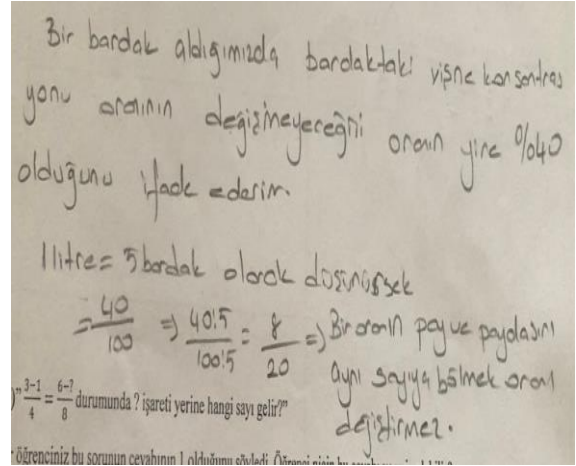 Bir bardak aldığımızda bardaktaki vişne konsantras
yonu oranının değişmeyeceğni oranın yine %40
olduğunu ifade ederim.
1 litre = 5 bardak olarak düşünürsek
= 40/100 ⇒ 40:5/100:5 = 8/20 ⇒ Bir oranın pay ve paydasını
aynı sayıya bölmek oranı
değiştirmez.
)" 3-1/4 = 6-?/8 durumunda ? işareti yerine hangi sayı gelir?"
öğrenciniz bu sorunun cevabının 1 olduğunu söyledi. Öğrenci